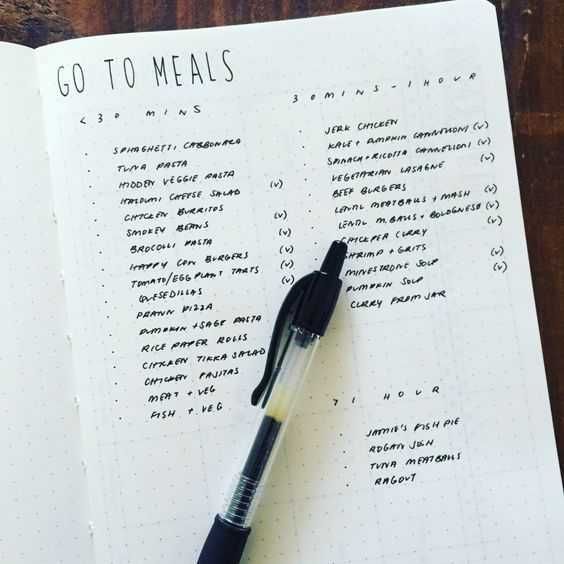 GO TO MEALS
<30 MINS
SPHAGHETTI CARBONARA
TUNA PASTA
HIDDEN VEGGIE PASTA
HALOUMI CHEESE SALAD (V)
CHICKEN BURRITOS
SMOKEY BEANS (V)
BROCOLI PASTA (V)
HAPPY COW BURGERS (V)
TOMATO/EGGPLANT TARTS (V)
QUESEDILLAS (V)
PRAWN PIZZA
PUMPKIN + SAGE PASTA
RICE PAPER ROLLS
CHICKEN TIKKA SALAD
CHICKEN FAJITAS
MEAT + VEG
FISH + VEG
30MINS-1HOUR
JERK CHICKEN
KALE + PUMPKIN CANNELLONI (V)
SPINACH + RICOTTA CANNELLONI (V)
VEGETARIAN LASAGNE (V)
BEEF BURGERS
LENTIL MEATBALLS + MASH (V)
LENTIL M.BALLS + BOLOGNESE (V)
CHICKPEA CURRY (V)
SHRIMP + GRITS
MINESTRONE SOUP (V)
PUMPKIN SOUP (V)
CURRY FROM JAR
>1 HOUR
JAMIE'S FISH PIE
ROGAN JOSH
TUNA MEATBALLS
RAGOUT